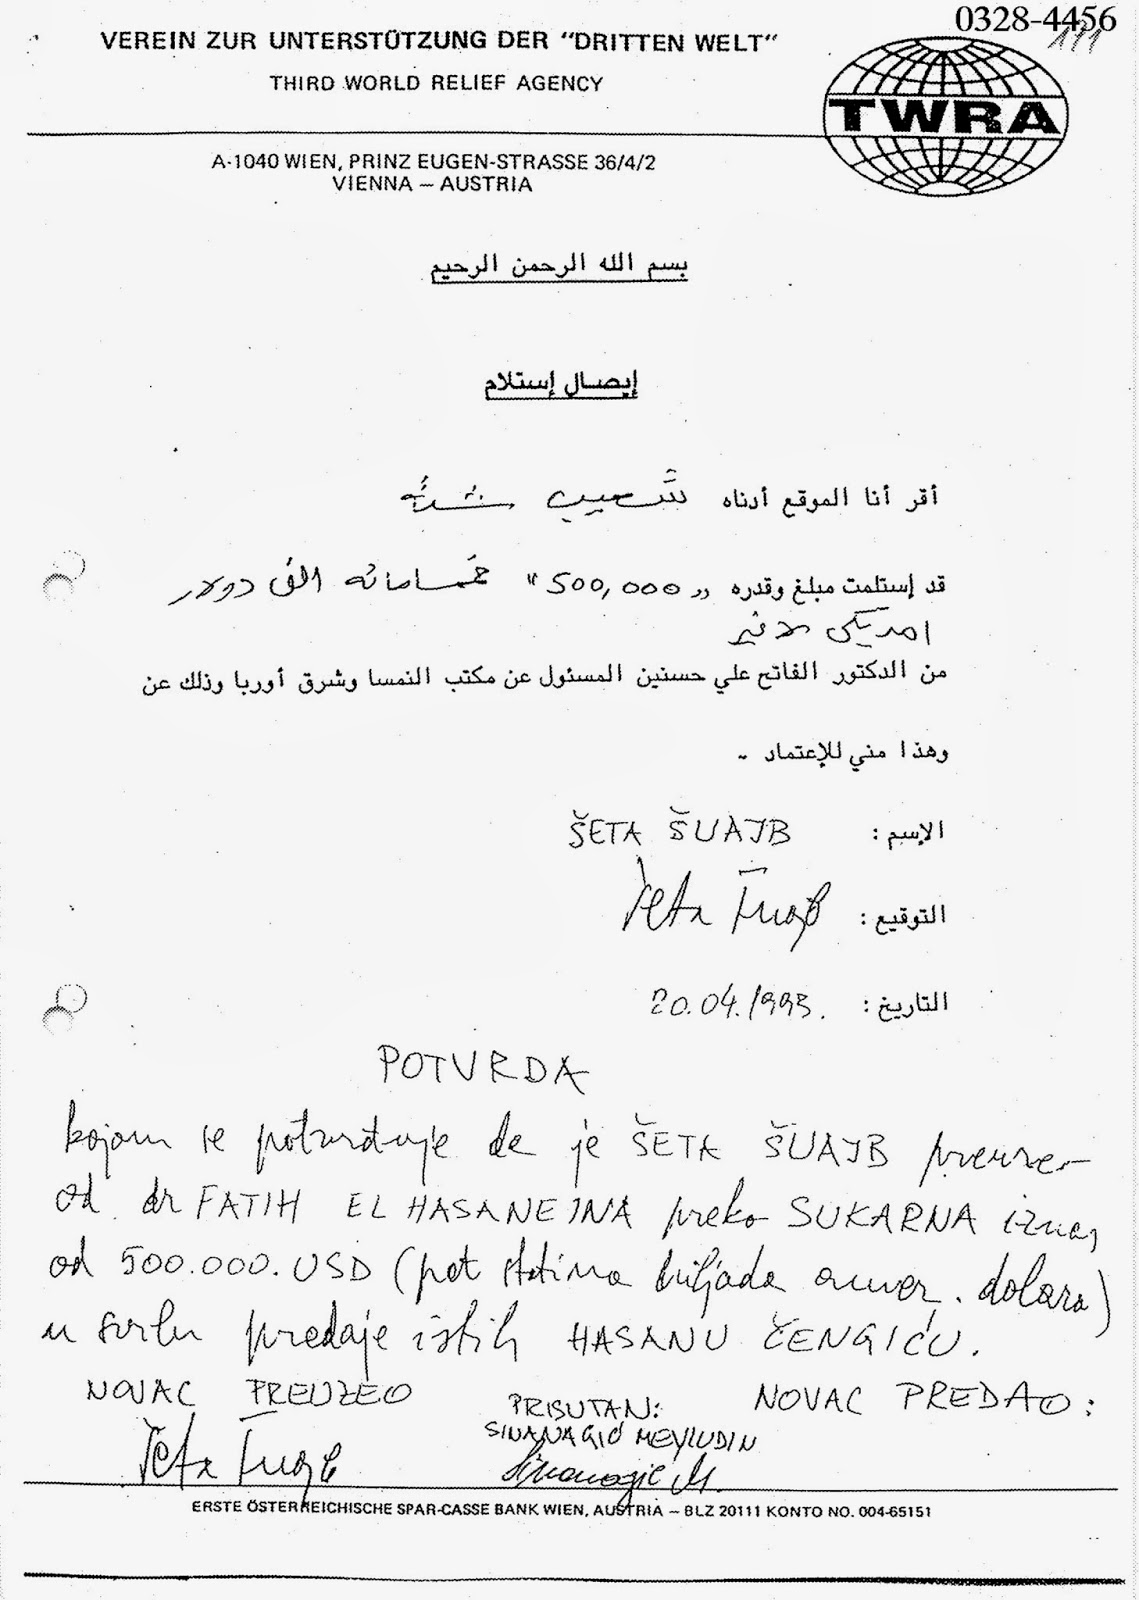 0328-4456
171
VEREIN ZUR UNTERSTÜTZUNG DER "DRITTEN WELT"
THIRD WORLD RELIEF AGENCY
TWRA
A-1040 WIEN, PRINZ EUGEN-STRASSE 36/4/2
VIENNA – AUSTRIA
بسم الله الرحمن الرحيم
إيصال إستلام
أقر أنا الموقع أدناه شعيب
قد إستلمت مبلغ وقدره „500,000" خمسامائه الف دولار
امريكي لا غير
من الدكتور الفاتح علي حسنين المسئول عن مكتب النمسا وشرق أوربا وذلك عن
وهذا مني للإعتماد ..
الإسم : ŠETA ŠUAJB
التوقيع : Šeta Šuajb
التاريخ : 20.04.1993.
POTVRDA
kojom se potvrđuje da je ŠETA ŠUAJB preuzeo
od dr FATIH EL HASANEINA preko SUKARNA iznos
od 500.000.USD (pet stotina hiljada amer. dolara)
u svrhu predaje istih HASANU ČENGIĆU.
NOVAC PREUZEO PRISUTAN: NOVAC PREDAO:
SINANAGIĆ MEVLUDIN
Šeta Šuajb Sinanagić M.
ERSTE ÖSTERREICHISCHE SPAR-CASSE BANK WIEN, AUSTRIA – BLZ 20111 KONTO NO. 004-65151